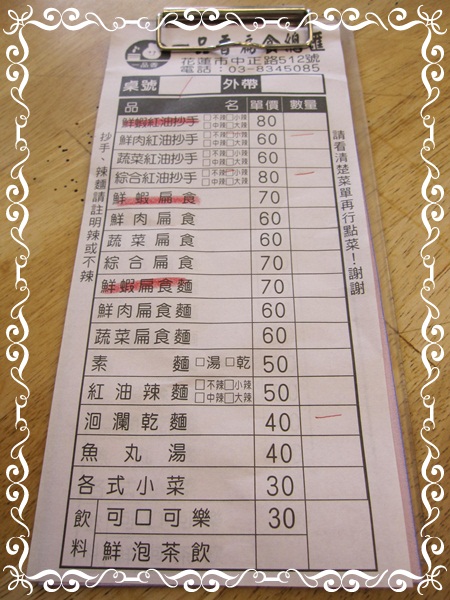 一品香扁食總匯
一品香
花蓮市中正路512號
電話：03-8345085
桌號 外帶
品名 單價 數量
鮮蝦紅油抄手 □不辣□小辣 □中辣□大辣 80
鮮肉紅油抄手 □不辣□小辣 □中辣□大辣 60
蔬菜紅油抄手 □不辣□小辣 □中辣□大辣 60
綜合紅油抄手 □不辣□小辣 □中辣□大辣 80
鮮蝦扁食 70
鮮肉扁食 60
蔬菜扁食 60
綜合扁食 70
鮮蝦扁食麵 70
鮮肉扁食麵 60
蔬菜扁食麵 60
素麵 □湯□乾 50
紅油辣麵 □不辣□小辣 □中辣□大辣 50
洄瀾乾麵 40
魚丸湯 40
各式小菜 30
飲料 可口可樂 30
鮮泡茶飲
抄手、辣麵請註明辣或不辣
請看清楚菜單再行點菜！謝謝